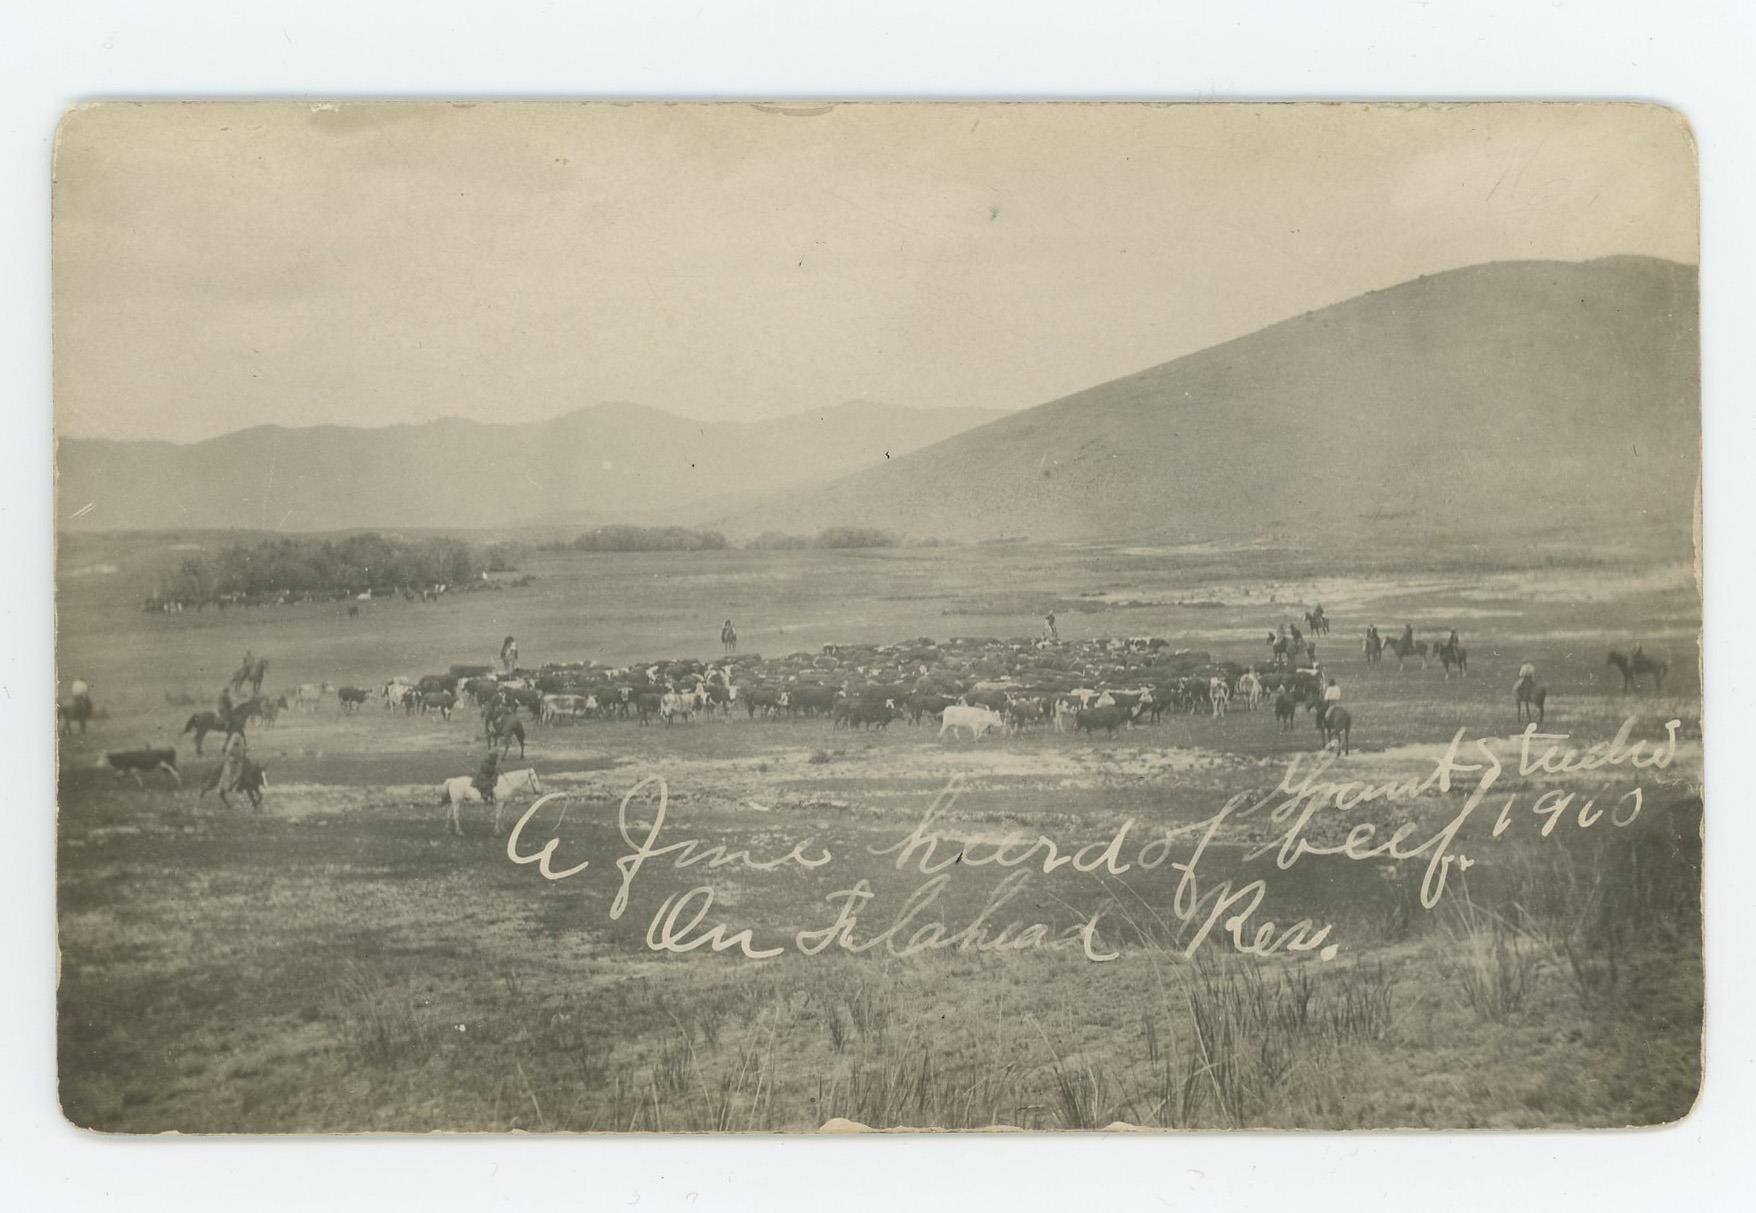 A Fine heard of beef.
On Flahead Res.
Grant Studio
1910